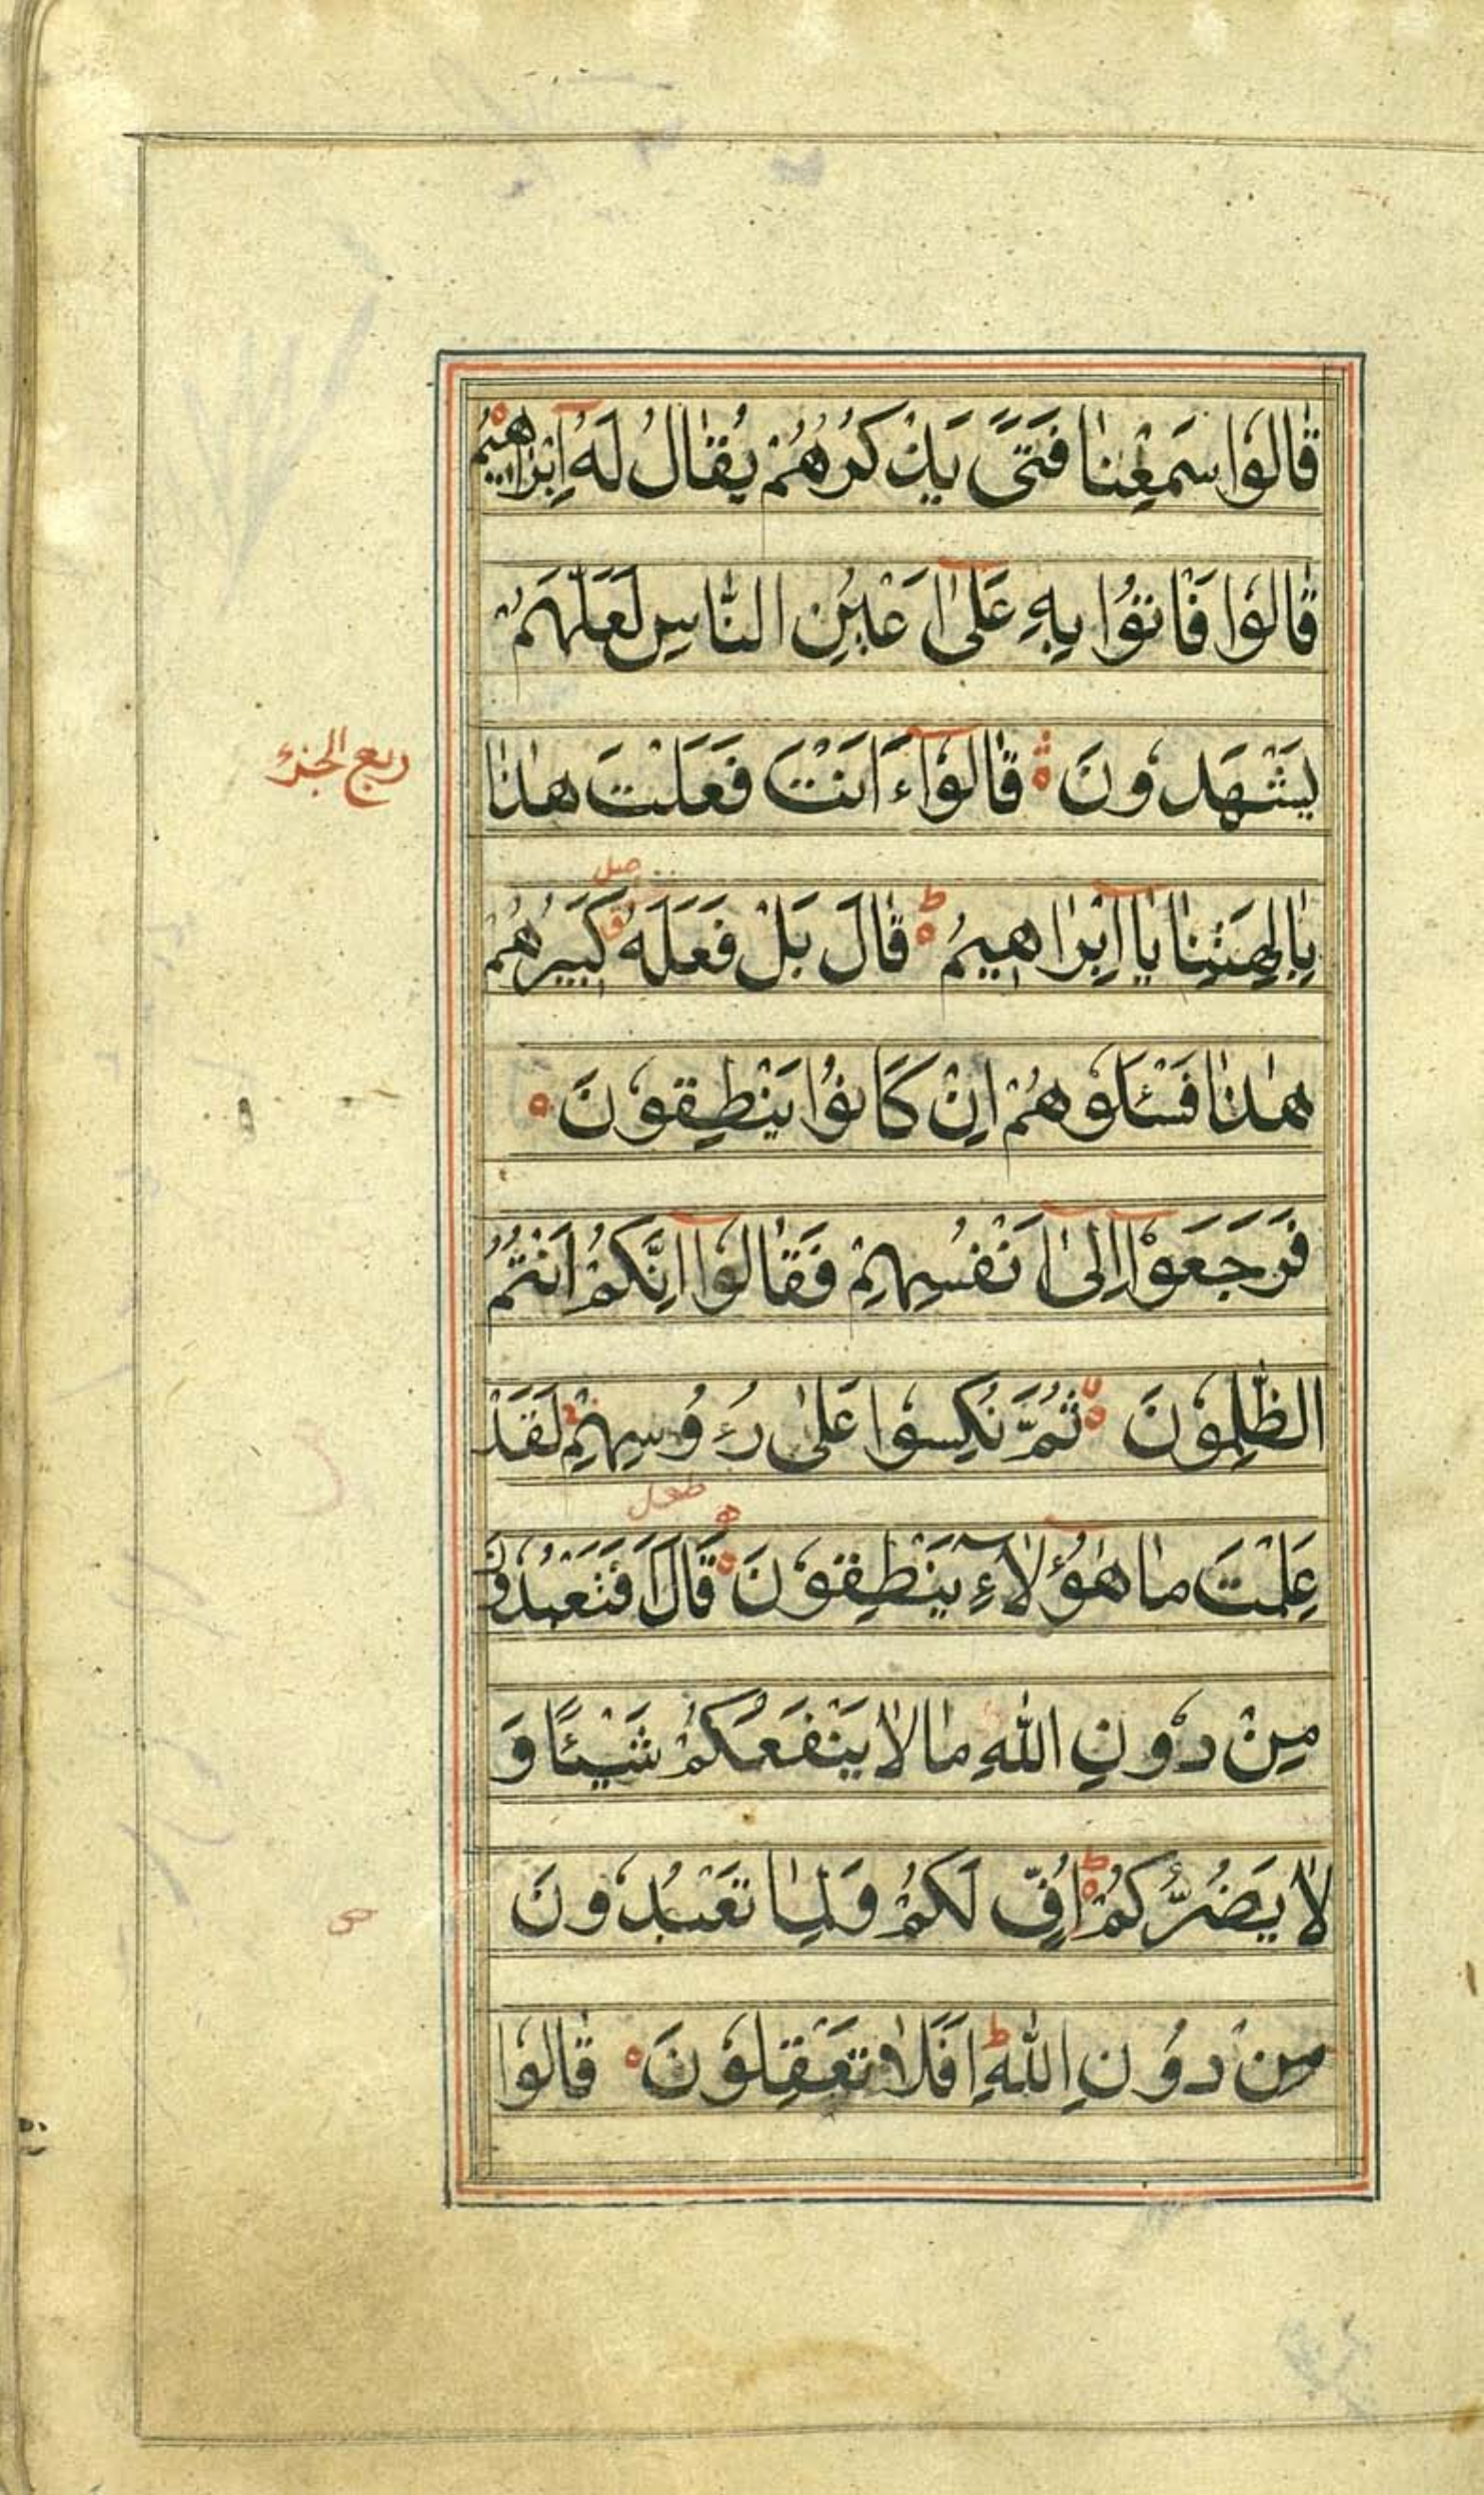 قَالُوا سَمِعْنَا فَتًى يَذْكُرُهُمْ يُقَالُ لَهُ اِبْرَاهِيمُ
قَالُوا فَاْتُوا بِهِ عَلَىٰ اَعْيُنِ النَّاسِ لَعَلَّهُمْ
يَشْهَدُونَ قَالُوا ءَاَنْتَ فَعَلْتَ هٰذَا
ربع الجزء
بِاٰلِهَتِنَا يَا اِبْرَاهِيمُ ط قَالَ بَلْ فَعَلَهُ كَبِيرُهُمْ
هٰذَا فَسْئَلُوهُمْ اِنْ كَانُوا يَنْطِقُونَ
فَرَجَعُوا اِلَىٰ اَنْفُسِهِمْ فَقَالُوا اِنَّكُمْ اَنْتُمُ
الظَّالِمُونَ ثُمَّ نُكِسُوا عَلَىٰ رُءُوسِهِمْ لَقَدْ
عَلِمْتَ مَا هٰؤُلَاءِ يَنْطِقُونَ قَالَ اَفَتَعْبُدُونَ
مِنْ دُونِ اللّٰهِ مَا لَا يَنْفَعُكُمْ شَيْئًا وَ
لَا يَضُرُّكُمْ ط اُفٍّ لَكُمْ وَلِمَا تَعْبُدُونَ
مِنْ دُونِ اللّٰهِ ط اَفَلَا تَعْقِلُونَ قَالُوا